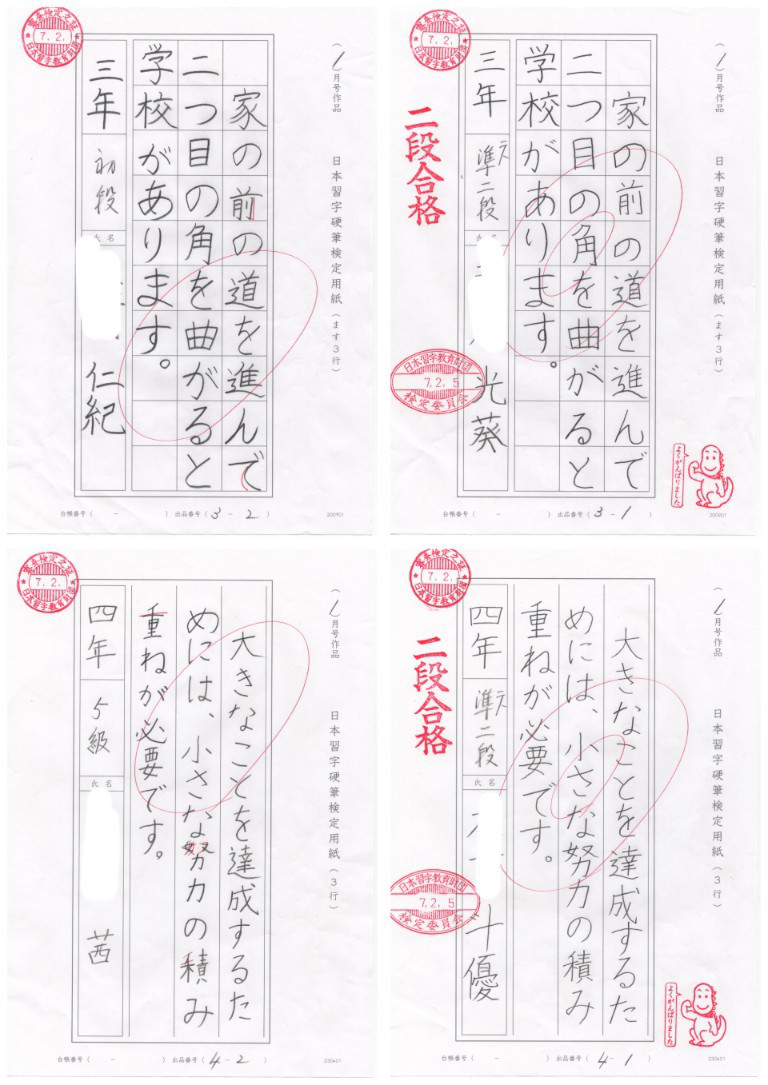 (1)月号作品
日本習字硬筆検定用紙(ます3行)
家の前の道を進んで
二つ目の角を曲がると
学校があります。
三年
初段
氏名
仁紀
審査検定之証
7.2.
日本習字教育財団
台帳番号( - )
出品番号(3-2)
200901
(1)月号作品
日本習字硬筆検定用紙(ます3行)
家の前の道を進んで
二つ目の角を曲がると
学校があります。
三年
準二段
氏名
光葵
二段合格
審査検定之証
7.2.
日本習字教育財団
日本習字教育財団
7.2.5
検定委員会
よくがんばりました
台帳番号( - )
出品番号(3-1)
200901
(1)月号作品
日本習字硬筆検定用紙(3行)
大きなことを達成するた
めには、小さな努力の積み
重ねが必要です。
四年
5級
氏名
茜
審査検定之証
7.2.
日本習字教育財団
台帳番号( - )
出品番号(4-2)
230401
(1)月号作品
日本習字硬筆検定用紙(3行)
大きなことを達成するた
めには、小さな努力の積み
重ねが必要です。
四年
準二段
氏名
優
二段合格
審査検定之証
7.2.
日本習字教育財団
日本習字教育財団
7.2.5
検定委員会
よくがんばりました
台帳番号( - )
出品番号(4-1)
230401